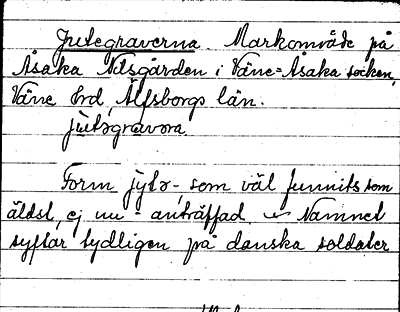 Jutegraverna. Markområde på
Åsaka Nilsgården i Väne-Åsaka socken,
Väne hd, Älfsborgs län.
jutəgravəra.
Form jytə-, som väl funnits som
äldst, ej nu - anträffad. Namnet
syftar tydligen på danska soldater